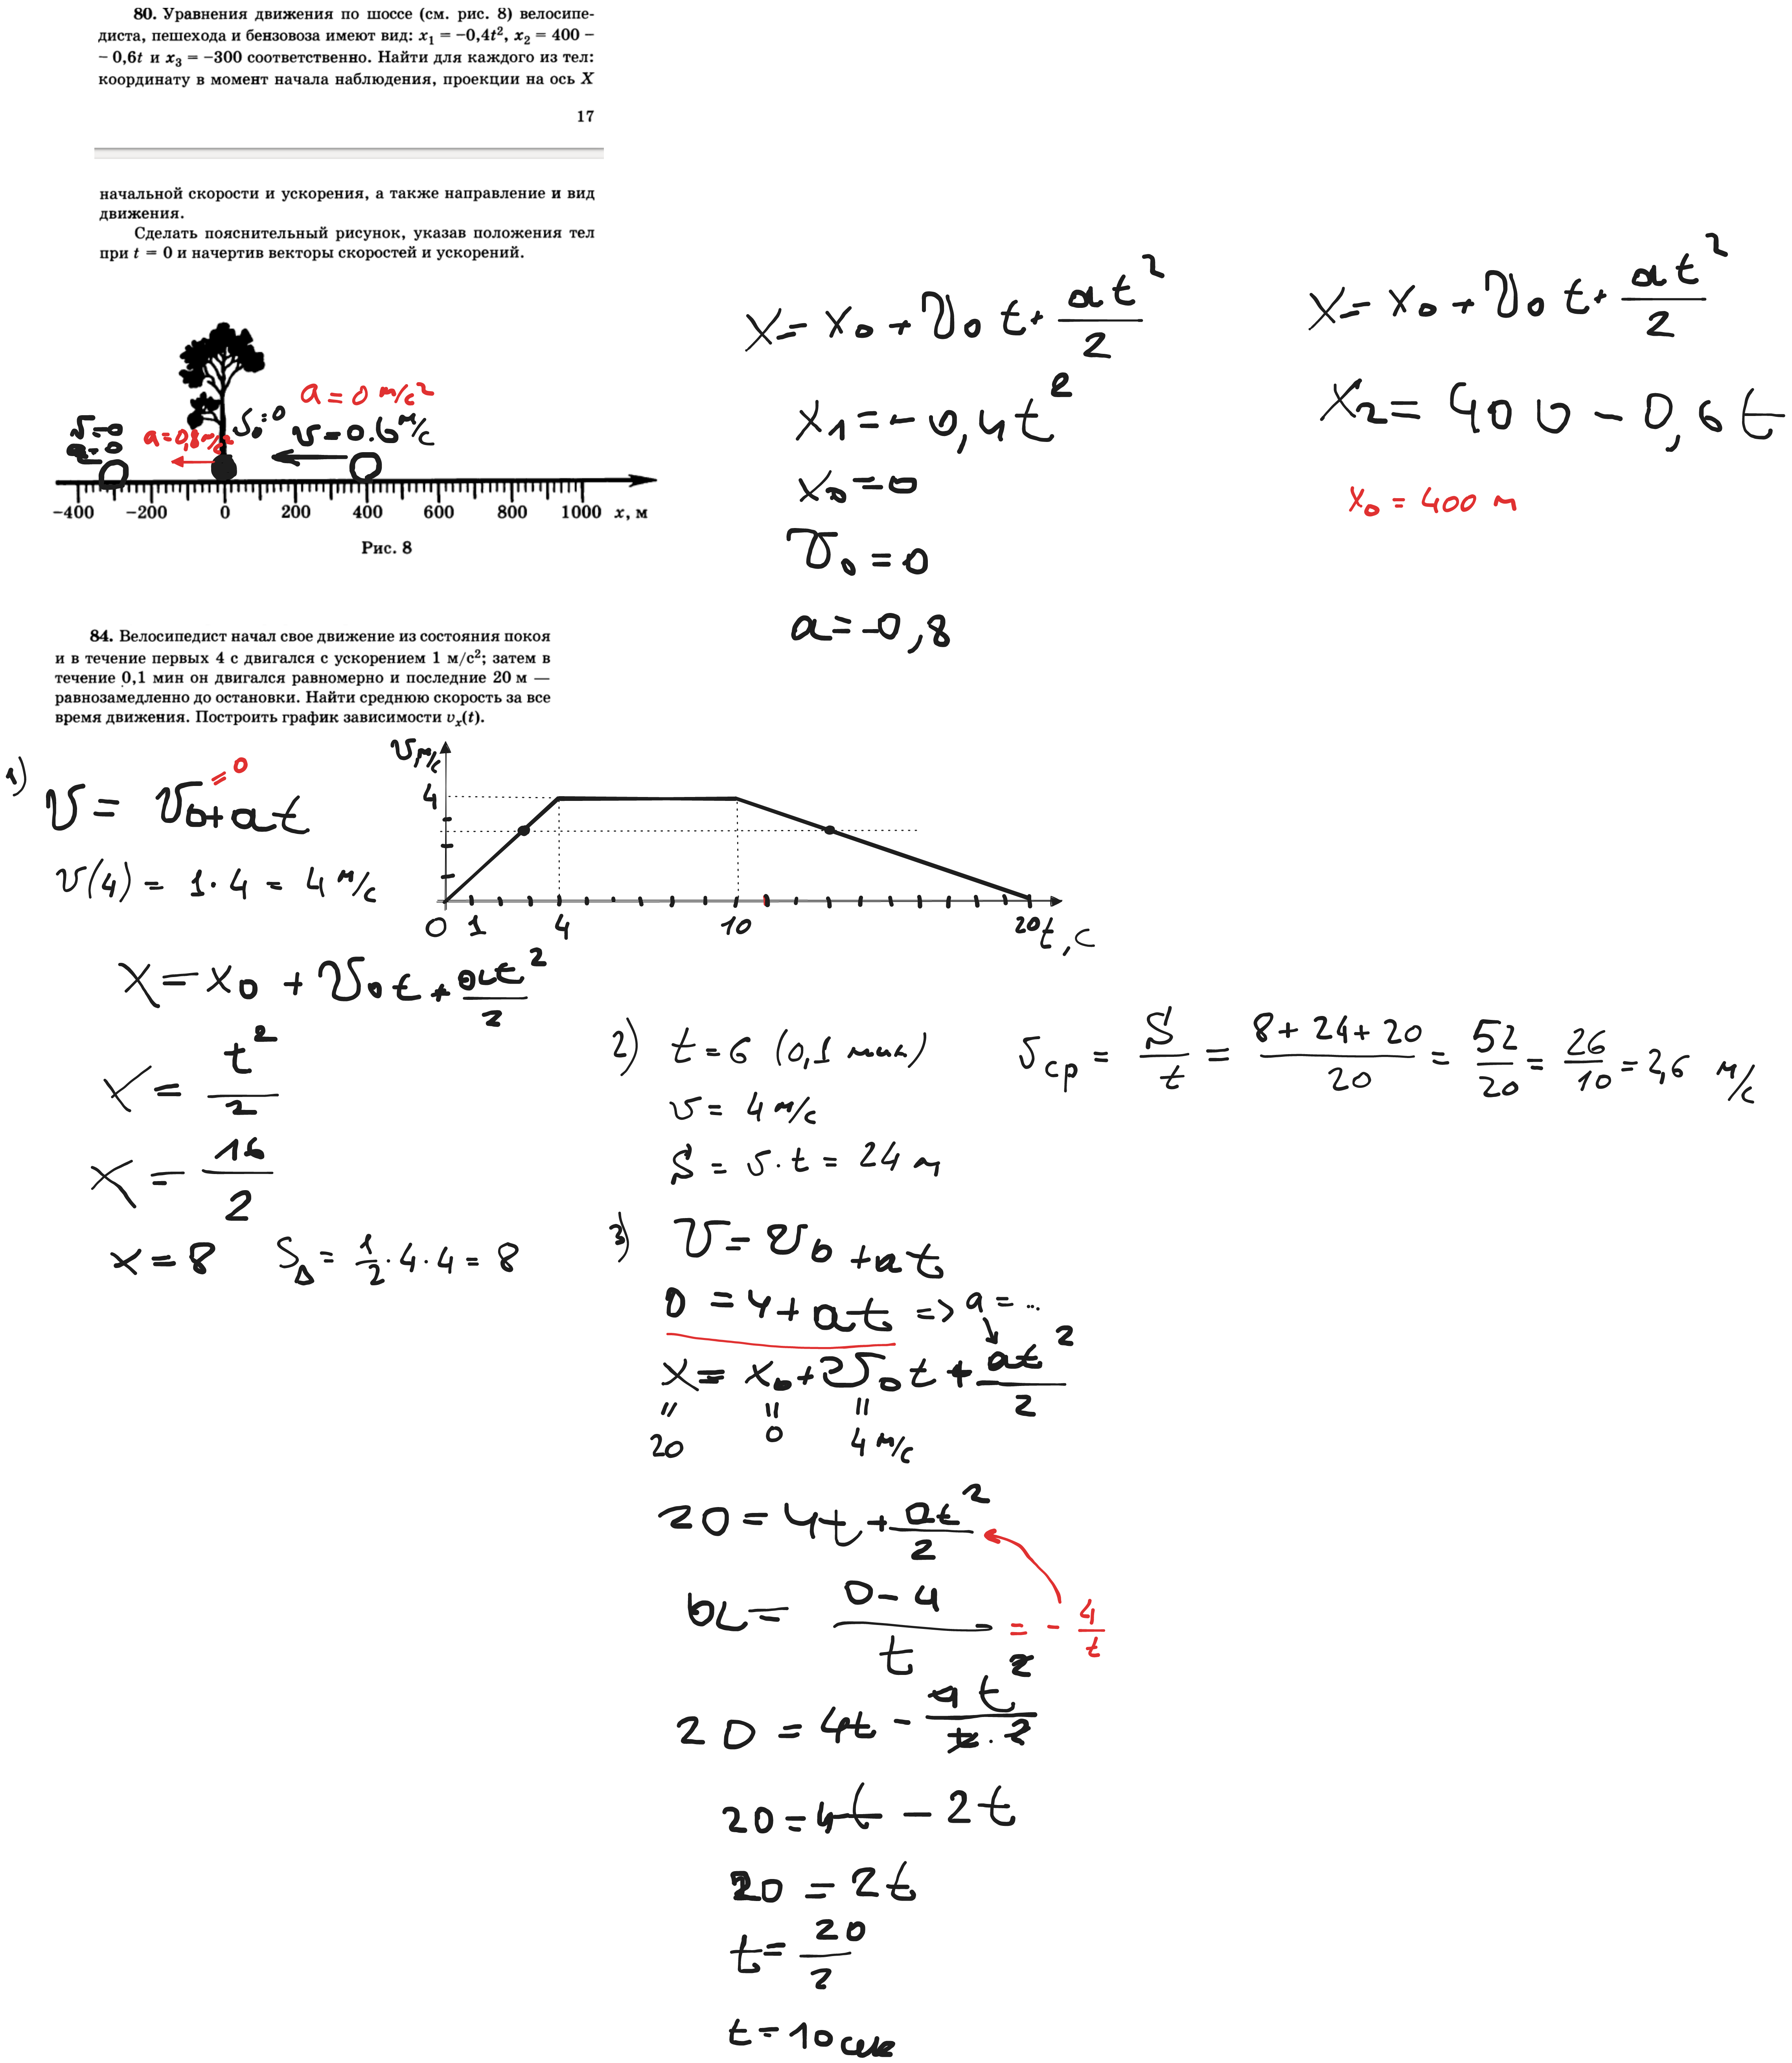 80. Уравнения движения по шоссе (см. рис. 8) велосипе-
диста, пешехода и бензовоза имеют вид: x₁ = −0,4t², x₂ = 400 −
− 0,6t и x₃ = −300 соответственно. Найти для каждого из тел:
координату в момент начала наблюдения, проекции на ось X
17
начальной скорости и ускорения, а также направление и вид
движения.
Сделать пояснительный рисунок, указав положения тел
при t = 0 и начертив векторы скоростей и ускорений.
a = 0 м/с²
v=0
a=0
a=0,8м/с²
v₀=0
v=0.6 м/с
−400 −200 0 200 400 600 800 1000 x, м
Рис. 8
x = x₀ + v₀ t + at²/2
x₁ = −0,4t²
x₀ = 0
v₀ = 0
a = −0,8
x = x₀ + v₀ t + at²/2
x₂ = 400 − 0,6t
x₀ = 400 м
84. Велосипедист начал свое движение из состояния покоя
и в течение первых 4 с двигался с ускорением 1 м/с²; затем в
течение 0,1 мин он двигался равномерно и последние 20 м —
равнозамедленно до остановки. Найти среднюю скорость за все
время движения. Построить график зависимости vₓ(t).
1)
=0
v = v₀+at
v(4) = 1·4 = 4 м/с
v м/с
4
0 1 4 10 20 t,c
x = x₀ + v₀t + at²/2
x = t²/2
x = 16/2
x = 8
S△ = 1/2·4·4 = 8
2) t = 6 (0,1 мин)
v = 4 м/с
S = v·t = 24 м
vср = S/t = 8+24+20/20 = 52/20 = 26/10 = 2,6 м/с
3) v = v₀ +at
0 = 4+at => a = ...
x = x₀+v₀t + at²/2
" " "
20 0 4 м/с
20 = 4t + at²/2
a = 0−4/t = − 4/t
20 = 4t − 4t²/t·2
20 = 4t − 2t
20 = 2t
t = 20/2
t = 10 сек